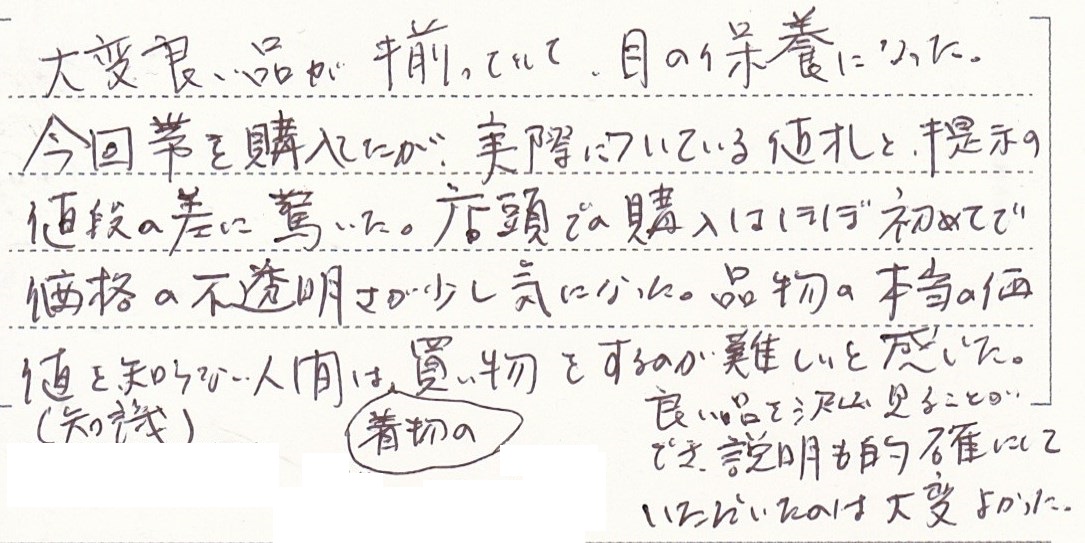 大変良い品が揃っていて、目の保養になった。
今回帯を購入したが、実際についている値札と、提示の
値段の差に驚いた。店頭での購入はほぼ初めてで
価格の不透明さが少し気になった。品物の本当の価
値を知らない人間は、買い物をするのが難しいと感じた。
(知識)
着物の
良い品を沢山見ることが
でき、説明も的確にして
いただいたのは大変よかった。